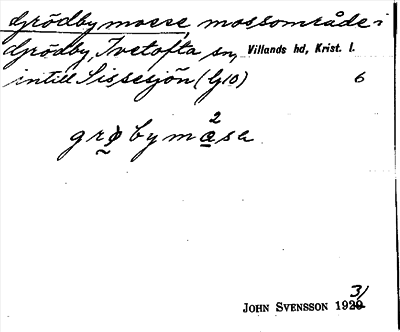 Grödby mosse, mossområde i
Grödby, Ivetofta sn, Villands hd, Krist. l.
intill Sissesjön (G10) 6
grøbymåsa 2
JOHN SVENSSON 1920 31